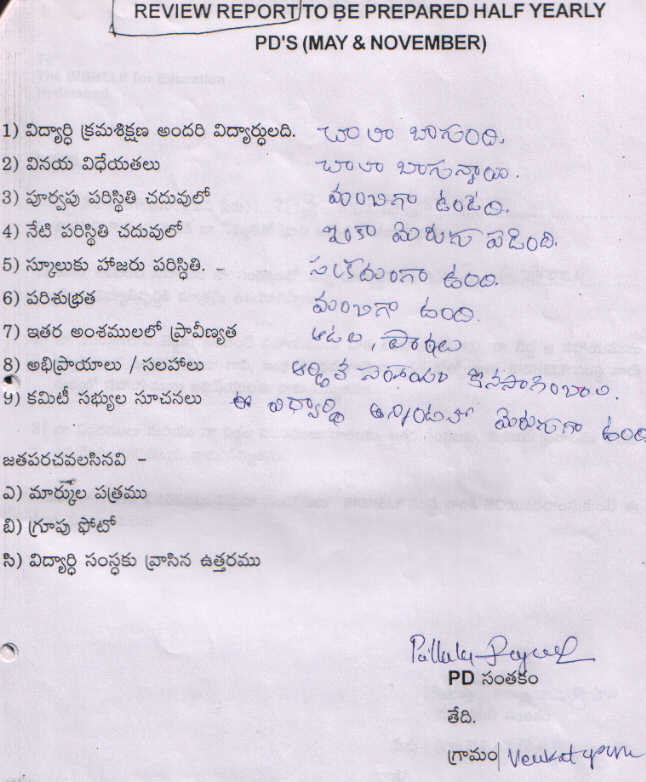 REVIEW REPORT TO BE PREPARED HALF YEARLY
PD'S (MAY & NOVEMBER)
1) విద్యార్ధి క్రమశిక్షణ అందరి విద్యార్ధులది. చాలా బాగుంది.
2) వినయ విధేయతలు చాలా బాగున్నాయి.
3) పూర్వపు పరిస్థితి చదువులో మంచిగా ఉండేది.
4) నేటి పరిస్థితి చదువులో ఇంకా మెరుగు పడింది.
5) స్కూలుకు హాజరు పరిస్థితి. సక్రమంగా ఉంది.
6) పరిశుభ్రత మంచిగా ఉంది.
7) ఇతర అంశములలో ప్రావీణ్యత ఆటల పాటలు
8) అభిప్రాయాలు / సలహాలు ఆర్థిక సహాయం కొనసాగించాలి.
9) కమిటీ సభ్యుల సూచనలు ఈ విద్యార్థి అన్నింటిలో మెరుగుగా ఉంది
జతపరచవలసినవి –
ఎ) మార్కుల పత్రము
బి) గ్రూపు ఫోటో
సి) విద్యార్ధి సంస్ధకు వ్రాసిన ఉత్తరము
PD సంతకం
తేది.
గ్రామం